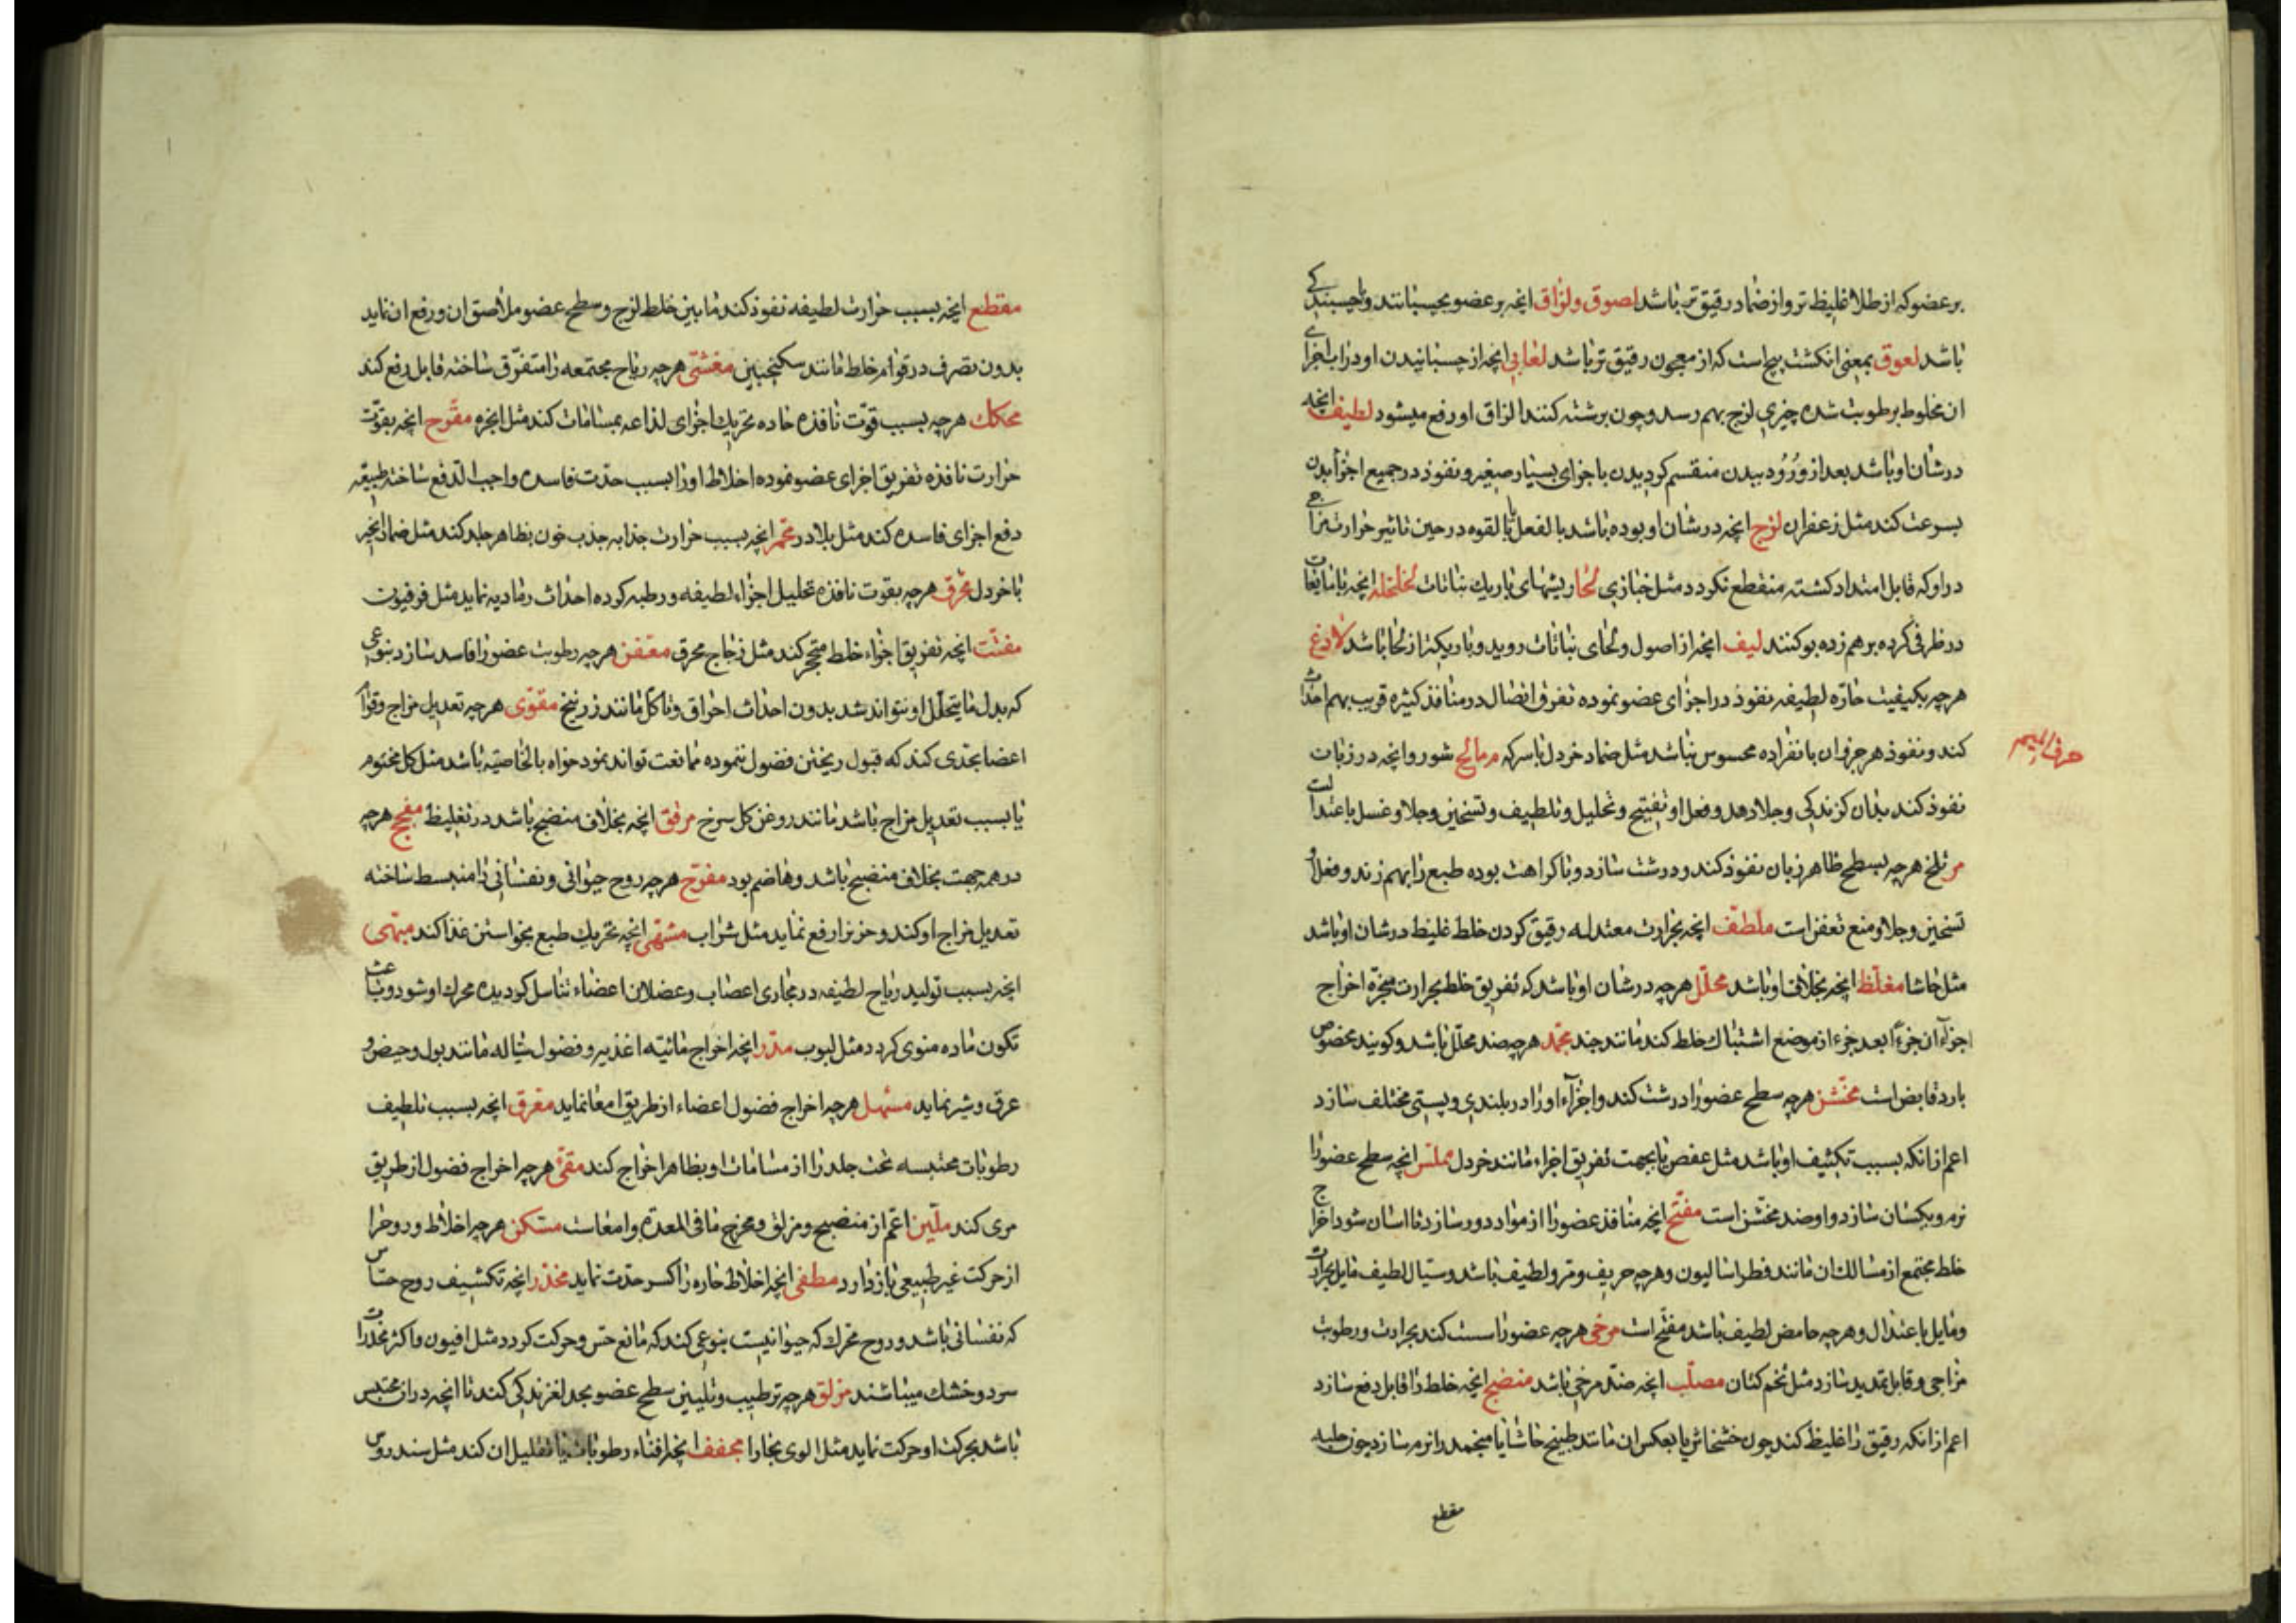 بر عضو که از طلا غلیظ تر و از ضماد رقیق تر باشد لصوق و لزاق انچه بر عضو بچسبانند و با چسبندگی
باشد لعوق بمعنی انکشت پیچ است که از معجون رقیق تر باشد لعابی انچه از چسبانیدن او در اب اجزای
ان مخلوط برطوبت شده چیزی لزج بهم رسد و چون برشته کنند الزاق او رفع میشود لطیف انچه
در شان او باشد بعد از ورود ببدن منقسم کردیدن باجزای بسیار صغیر و نفوذ در جمیع اجزا بدن
بسرعت کند مثل زعفران لزج انچه در شان او بوده باشد بالفعل یا بالقوه در حین تاثیر حرارت مزاجی
در او که قابل امتداد کشته منقطع نکردد مثل خبازی لحا و ریشهای باریک نباتات لخلخه انچه با مایعات
در ظرفی کرده بر هم زده بو کنند لیف انچه از اصول و لحای نباتات روید و باریکتر از لحا باشد لاذع
هرچه بکیفیت حاره لطیفه نفوذ در اجزای عضو نموده تفرق اتصال در منافذ کثیره قریب بهم احداث
کند و نفوذ هر جزو ان بانفراده محسوس نباشد مثل ضماد خردل با سرکه م مالح شور و انچه در زبان
حرف المیم
نفوذ کند بدان کزندکی و جلا دهد و فعل او تفتیح و تحلیل و تلطیف و تسخین و جلا و غسل باعتدالست
مر تلخ هرچه بسطح ظاهر زبان نفوذ کند و درشت سازد و با کراهت بوده طبع را بهم زند و فعل او
تسخین و جلا و منع تعفن است ملطف انچه بحرارت معتدله رقیق کردن خلط غلیظ در شان او باشد
مثل حاشا مغلظ انچه بخلاف او باشد محلل هرچه در شان او باشد که تفریق خلط بحرارت مبخره اخراج
اجزاء آن جزءا بعد جزء از موضع اشتباک خلط کند مانند جند مجمد هرچه ضد محلل باشد و کویند مخصوص
بارد قابض است مخشن هرچه سطح عضو را درشت کند و اجزآء او را در بلندی و پستی مختلف سازد
اعم از انکه بسبب تکثیف او باشد مثل عفص یا بجهت تفریق اجزاء مانند خردل مملس انچه سطح عضو را
نرم و یکسان سازد و او ضد مخشن است مفتح انچه منافذ عضو را از مواد دور سازد تا اسان شود اخراج
خلط مجتمع از مسالک ان مانند فطراسالیون و هرچه حریف و مر و لطیف باشد و سیال لطیف مایل بحرارت
و مایل باعتدال و هرچه حامض لطیف باشد مفتح است مرخی هرچه عضو را سست کند بحرارت و رطوبت
مزاجی و قابل تمدید سازد مثل تخم کتان مصلب انچه ضد مرخی باشد منضج انچه خلط را قابل دفع سازد
اعم از انکه رقیق را غلیظ کند چون خشخاش یا بعکس ان مانند طبیخ حاشا یا منجمد را نرم سازد چون حلبه
مقطع
مقطع انچه بسبب حرارت لطیفه نفوذ کند ما بین خلط لزج و سطح عضو ملاصق ان و رفع ان نماید
بدون تصرف در قوام خلط مانند سکنجبین مغشی هرچه ریاح مجتمعه را متفرق ساخته قابل دفع کند
محکک هرچه بسبب قوت نافذه حاده تحریک اجزای لذاعه بمسامات کند مثل انجره مقرح انچه بقوت
حرارت نافذه تفریق اجزای عضو نموده اخلاط او را بسبب حدت فاسده واجب الدفع ساخته طبیعه
دفع اجزای فاسده کند مثل بلادر محمر انچه بسبب حرارت جذابه جذب خون بظاهر جلد کند مثل ضماد انجیر
با خردل محرق هرچه بقوت نافذه تحلیل اجزاء لطیفه و رطبه کرده احداث رمادیه نماید مثل فرفیون
مفتت انچه تفریق اجزاء خلط متحجر کند مثل زجاج محرق معفن هرچه رطوبت عضو را فاسد سازد بنوعی
که بدل ما یتحلل او نتواند شد بدون احداث احراق و تاکل مانند زرنیخ مقوی هرچه تعدیل مزاج و قوام
اعضا بحدی کند که قبول ریختن فضول ننموده ممانعت تواند نمود خواه بالخاصیه باشد مثل کل مختوم
یا بسبب تعدیل مزاج باشد مانند روغن کل سرخ مرقق انچه بخلاف منضج باشد در تغلیظ مفجج هرچه
در همه جهت بخلاف منضج باشد و هاضم بود مفرح هرچه روح حیوانی و نفسانی را منبسط ساخته
تعدیل مزاج او کند و حزن را رفع نماید مثل شراب مشهی انچه تحریک طبع بخواستن غذا کند مبهی
انچه بسبب تولید ریاح لطیفه در مجاری اعصاب و عضلات اعضاء تناسل کردیده محرک او شود و باعث
تکون ماده منوی کردد مثل لبوب مدر انچه اخراج مائیه اغذیه و فضول سیاله مانند بول و حیض و
عرق و شیر نماید مسهل هرچه اخراج فضول اعضاء از طریق امعا نماید معرق انچه بسبب تلطیف
رطوبات محتبسه تحت جلد را از مسامات او بظاهر اخراج کند مقئ هرچه اخراج فضول از طریق
مری کند ملین اعم از منضج و مزلق و مخرج ما فی المعده و امعاست مسکن هرچه اخلاط و روح را
از حرکت غیر طبیعی باز دارد مطفی انچه اخلاط حاره را کسر حدت نماید مخدر انچه تکثیف روح حساس
که نفسانی باشد و روح محرک که حیوانیست بنوعی کند که مانع حس و حرکت کردد مثل افیون و اکثر مخدرات
سرد و خشک میباشند مزلق هرچه ترطیب و تلیین سطح عضو بحد لغزندکی کند تا انچه در ان محتبس
باشد بحرکت او حرکت نماید مثل الوی بخارا مجفف انچه افناء رطوبات یا تقلیل ان کند مثل سندروس